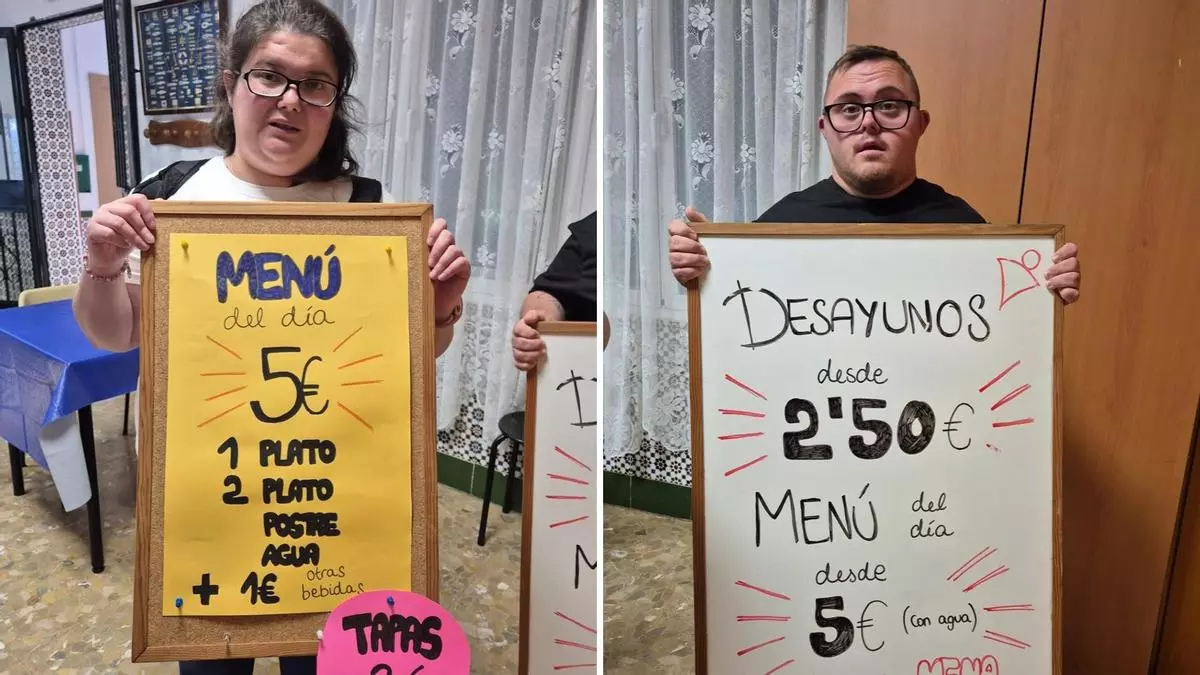 MENÚ
del día
5€
1 PLATO
2 PLATO
POSTRE
AGUA
+ 1€ otras bebidas
TAPAS
DESAYUNOS
desde
2'50€
MENÚ del día
desde
5€ (con agua)